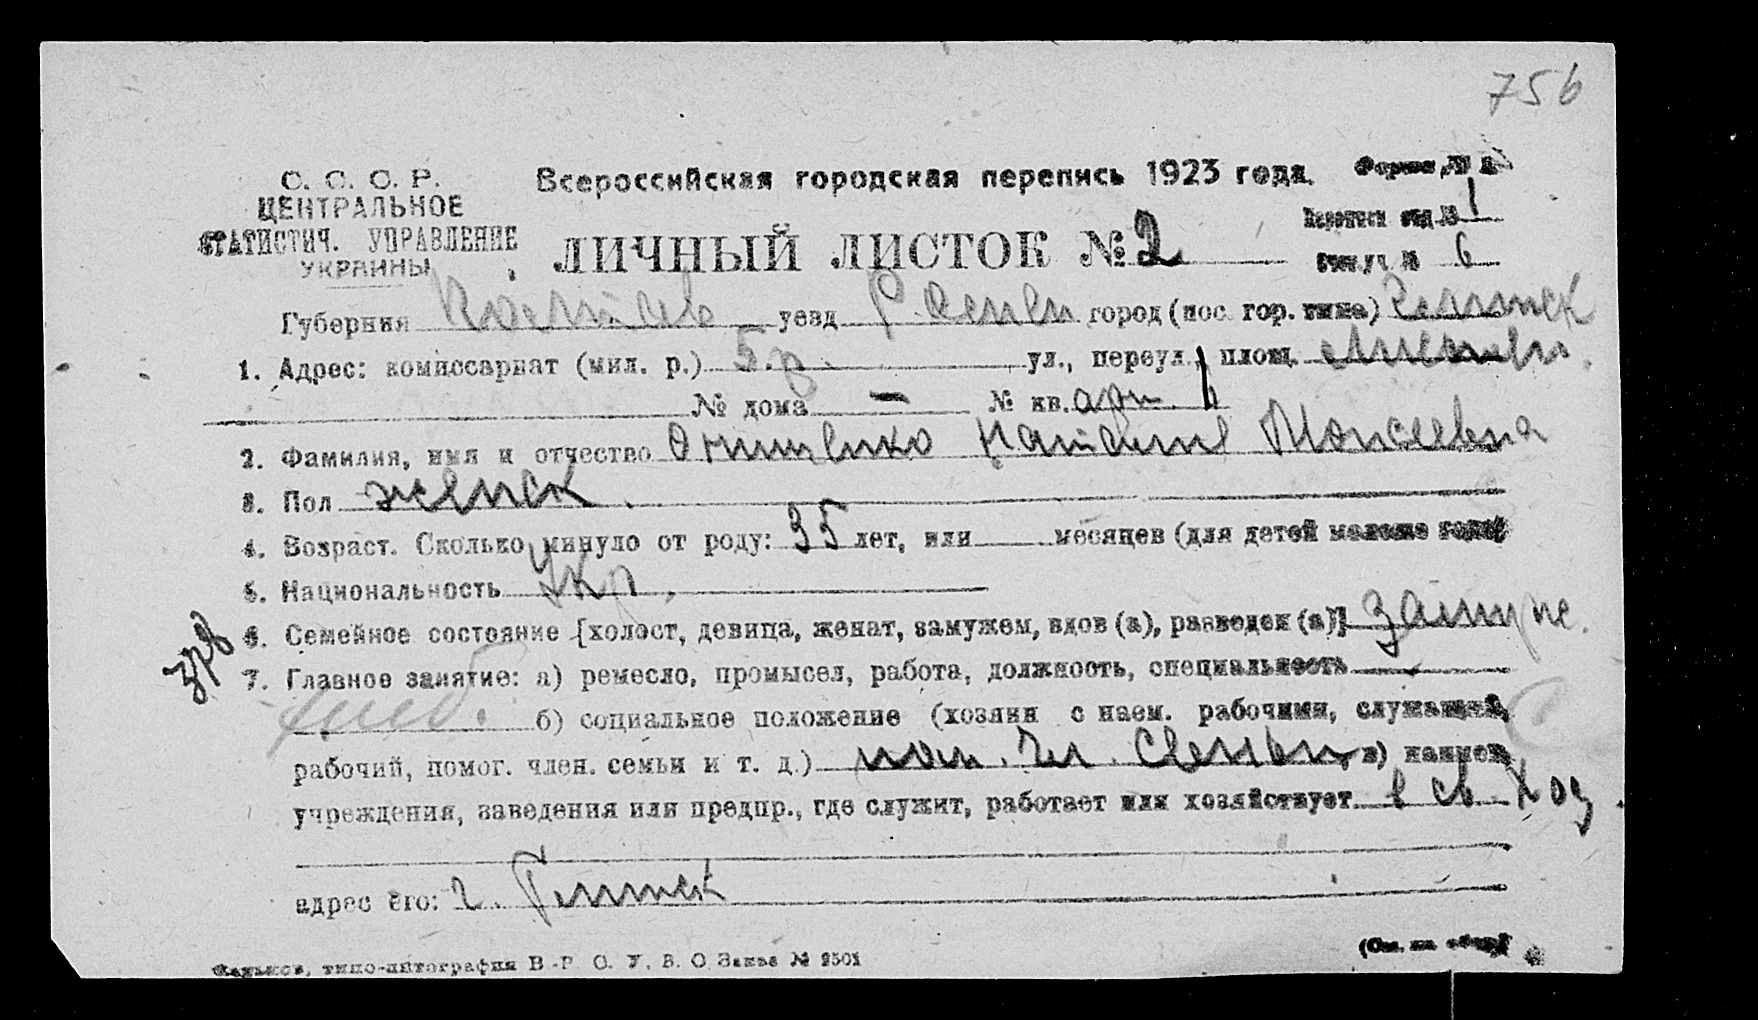 756
С. С. С. Р.
ЦЕНТРАЛЬНОЕ
СТАТИСТИЧ. УПРАВЛЕНИЕ
УКРАИНЫ
Всероссийская городская перепись 1923 года.
Форма № 1
ЛИЧНЫЙ ЛИСТОК № 2
Переписн отд. № 1
Счетн. уч. № 6
Губерния уезд город (пос. гор. типа)
1. Адрес: комиссариат (мил. р.) 5. р. ул., переул., площ.
№ дома — № кв.
2. Фамилия, имя и отчество Онищенко Моисеевна
3. Пол женск.
4. Возраст. Сколько минуло от роду: 35 лет, или месяцев (для детей моложе года)
5. Национальность Укр.
6. Семейное состояние [холост, девица, женат, замужем, вдов (а), разведен (а)] Замуже.
7. Главное занятие: а) ремесло, промысел, работа, должность, специальность
б) социальное положение (хозяин с наем. рабочими, служащий,
рабочий, помог. член. семьи и т. д.) пом. чл. семьи, в) наимен.
учреждения, заведения или предпр., где служит, работает или хозяйствует в св. хоз.
адрес его: г. Геническ
(См. на обор.)
Харьков, типо-литография В. Р. С. У. В. О. Заказ № 9501